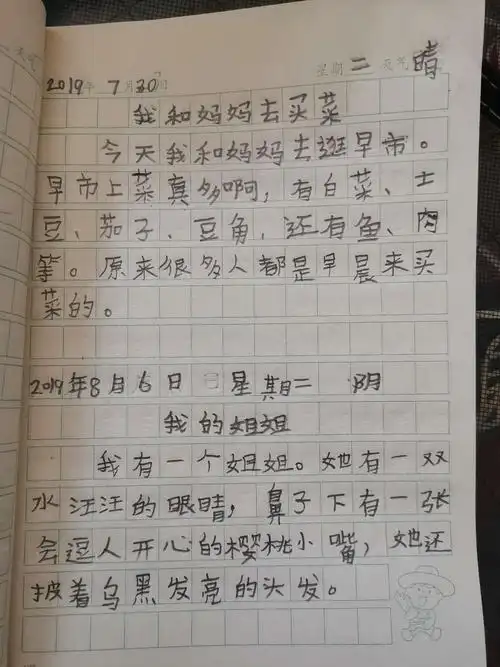 2019年7月30日 星期二 天气晴
我和妈妈去买菜
今天我和妈妈去逛早市。
早市上菜真多啊，有白菜、土
豆、茄子、豆角，还有鱼、肉
等。原来很多人都是早晨来买
菜的。
2019年8月6日 星期二 阴
我的姐姐
我有一个姐姐。她有一双
水汪汪的眼睛，鼻子下有一张
会逗人开心的樱桃小嘴，她还
披着乌黑发亮的头发。